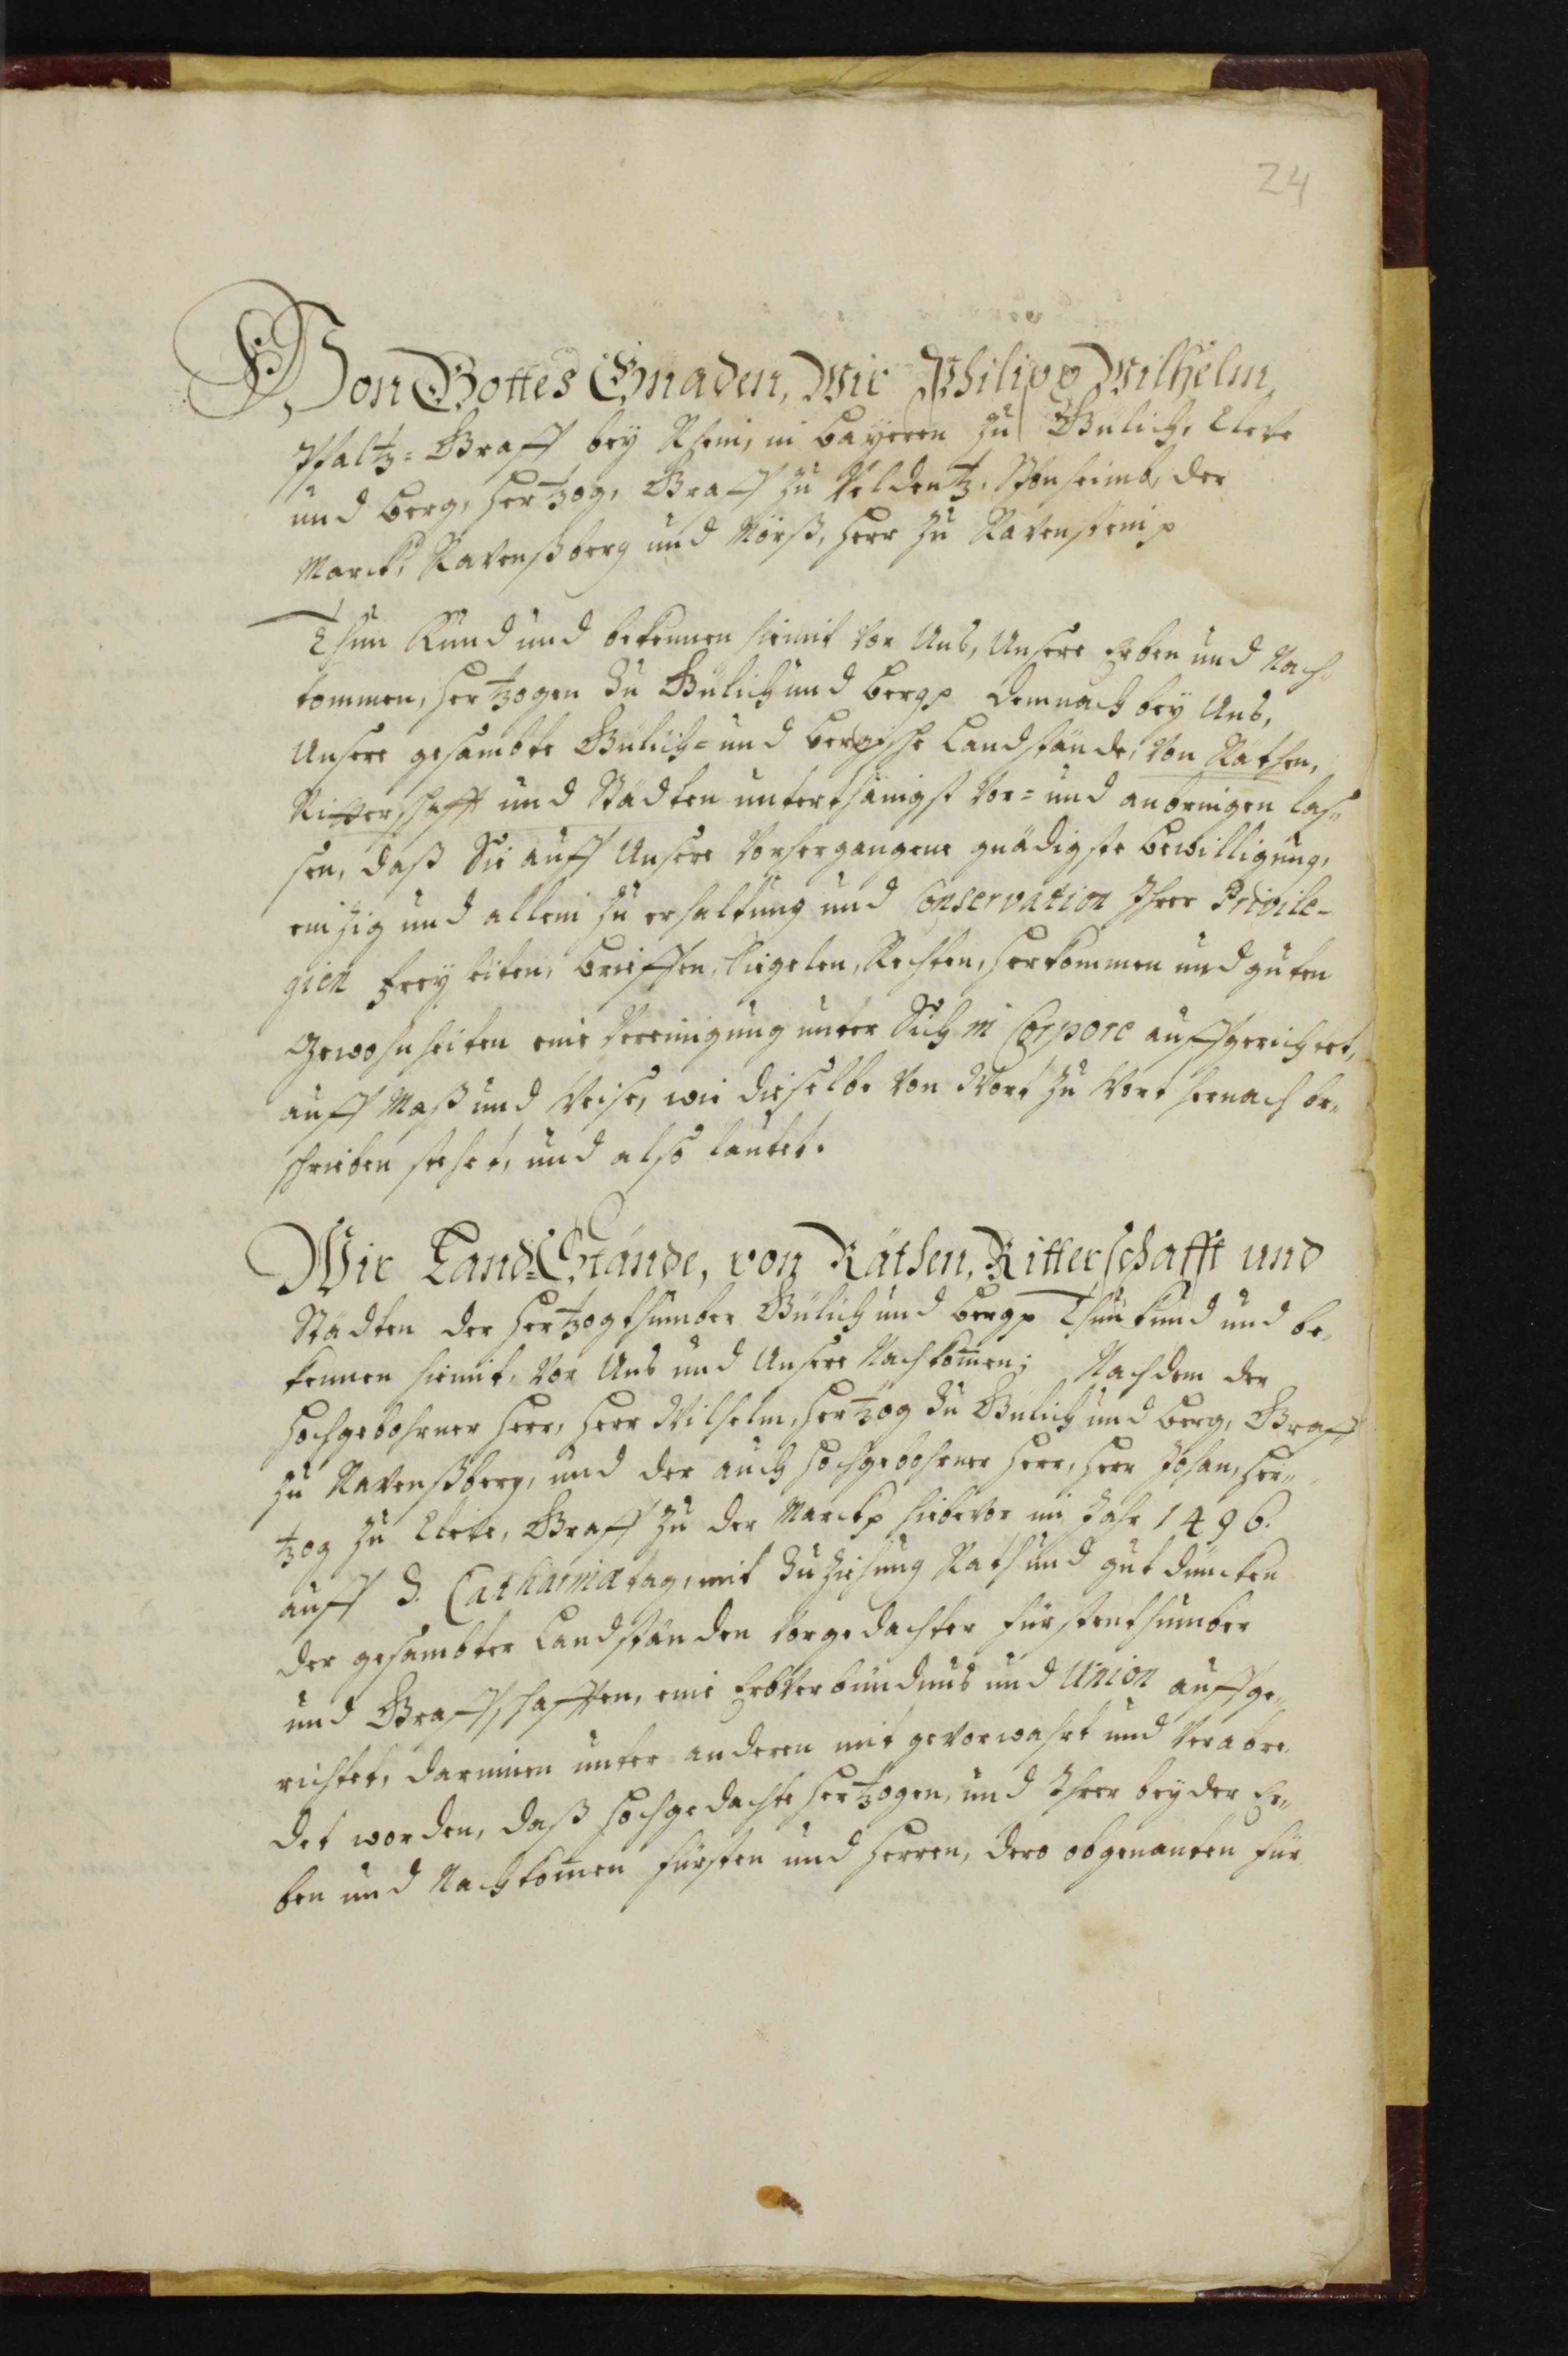 24
Von Gottes Gnaden, Wir Philipp Wilhelm,
Pfaltz-Graff bey Rhein, in Bayeren zu Gülich, Cleve
und Berg, Hertzog, Graff zu Veldentz, Sponheimb, der
Marck, Ravenßberg und Mörß, Herr zu Ravenstein p
Thun Kund und bekennen hiemit vor Uns, Unsere Erben und Nach-
kommen, Hertzogen zu Gülich und Berg p demnach bey Uns,
Unsere gesambte Gülich- und Bergische Landstände, von Rathen,
Ritterschafft und Städten unterthänigst vor- und anbringen las-
sen, daß Sie auff Unsere vorhergangene gnädigste Bewilligung,
einzig und allein zu erhaltung und Conservation Ihrer Privile-
gien freyheiten, Brieffen, Siegelen, Rechten, Herkommen und guten
Gewohnheiten eine Vereinigung unter Sich in Corpore auffgerichtet,
auff Maß und Weise, wie dieselbe von Wort zu Wort hernach be-
schrieben stehet, und also lautet.
Wir Land-Stände, von Räthen, Ritterschafft und
Städten der Hertzogthumber Gülich und Berg p Thun kund und be-
kennen hiemit, vor Uns und Unsere Nachkom̄en; Nachdem der
Hochgebohrner Herr, Herr Wilhelm, Hertzog zu Gülich und Berg, Graff
zu Ravenßberg, und der auch Hochgebohrner Herr, Herr Johan, Her-
tzog zu Cleve, Graff zu der Marck p hiebevor im Jahr 1496.
auff S. Catharinæ tag, mit Zuziehung Rath und gutdüncken
der gesambter Landständen vorgedachter Fürstenthumber
und Graffschafften, eine Erbverbündnus und Union auffge-
richtet, darinnen unter anderen mit gevorwahrt und verabre-
det worden, daß Hochgedachte Hertzogen, und Ihrer beyder Er-
ben und Nachkom̄en Fürsten und Herren, dero obgenanten Für